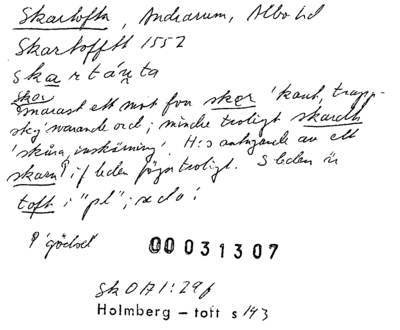 Skartofta, Andrarum, Albo hd
Skartofftt 1552
skartáṇta
skor
snarast ett mot fvn skor 'kant, trapp-
sky' svarande ord; mindre troligt skardh
'skåra, inskärning'. H:s antagande av ett
skarn¹ i f leden föga troligt. S leden är
toft i "pl"; se do!
1 'gödsel'
00031307
Sk O A1:29f
Holmberg – toft s 143